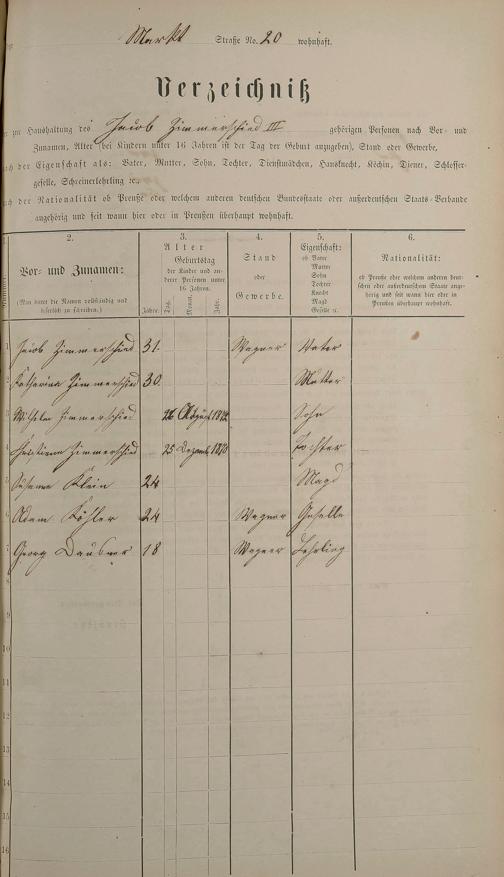 Markt Straße No. 20 wohnhaft.
Verzeichniß
zur Haushaltung des Jacob Zimmerschied III gehörigen Personen nach Vor- und
Zunamen, Alter (bei Kindern unter 16 Jahren ist der Tag der Geburt anzugeben), Stand oder Gewerbe,
der Eigenschaft als: Vater, Mutter, Sohn, Tochter, Dienstmädchen, Hausknecht, Köchin, Diener, Schlosser-
geselle, Schreinerlehrling ꝛc.,
der Nationalität ob Preuße oder welchem anderen deutschen Bundesstaate oder außerdeutschen Staats-Verbande
angehörig und seit wann hier oder in Preußen überhaupt wohnhaft.
2. 3. 4. 5. 6.
Vor- und Zunamen:
(Man bittet die Namen vollständig und leserlich zu schreiben.)
Alter
Geburtstag
der Kinder und anderer Personen unter 16 Jahren.
Jahre. Tag. Monat. Jahr.
Stand
oder
Gewerbe.
Eigenschaft:
ob Vater
Mutter
Sohn
Tochter
Knecht
Magd
Geselle ꝛc.
Nationalität:
ob Preuße oder welchem anderen deut-
schen oder außerdeutschen Staate ange-
hörig und seit wann hier oder in
Preußen überhaupt wohnhaft.
1 Jacob Zimmerschied 31. Wagner Vater
2 Katharina Zimmerschied 30. Mutter
3 Wilhelm Zimmerschied August Sohn
4 Christiana Zimmerschied 25 Dezemb. Tochter
5 Susanna Klein 24 Magd
6 Adam Köhler 24 Wagner Geselle
7 Georg 18 Wagner Lehrling
8
9
10
11
12
13
14
15
16